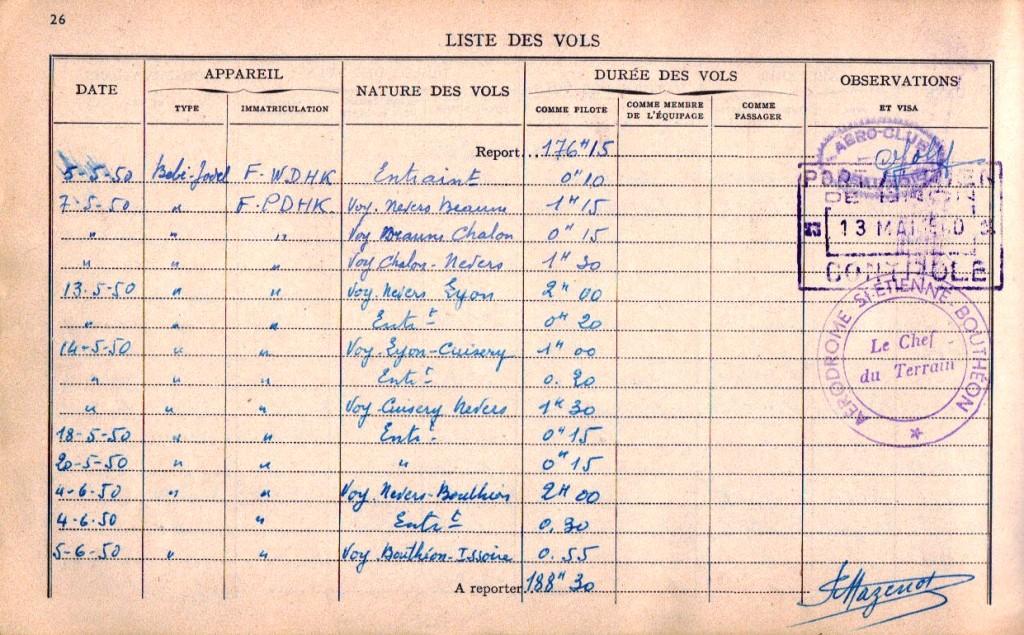 26
LISTE DES VOLS
DATE APPAREIL NATURE DES VOLS DURÉE DES VOLS OBSERVATIONS ET VISA
TYPE IMMATRICULATION COMME PILOTE COMME MEMBRE DE L'ÉQUIPAGE COMME PASSAGER
Report... 176H15
5-5-50 Bébé-Jodel F.WDHK Entraint 0H10
7-5-50 " F.PDHK Voy. Nevers Beaune 1H15
" " " Voy Beaune Chalon 0H15
" " " Voy Chalon-Nevers 1H30
13.5-50 " " Voy. Nevers Lyon 2H00
" " " Entt 0H20
14-5-50 " " Voy. Lyon-Cuisery 1H00
" " " Entt 0.20
" " " Voy Cuisery Nevers 1H30
18-5-50 " " Entt 0H15
20-5-50 " " " 0H15
4-6-50 " " Voy. Nevers-Bouthéon 2H00
4-6-50 " Entt 0.30
5-6-50 " " Voy Bouthéon-Issoire 0.55
A reporter 188H30
AERO-CLUB
13 MAI 1950
CONTROLE
AERODROME ST-ETIENNE BOUTHÉON
Le Chef
du Terrain